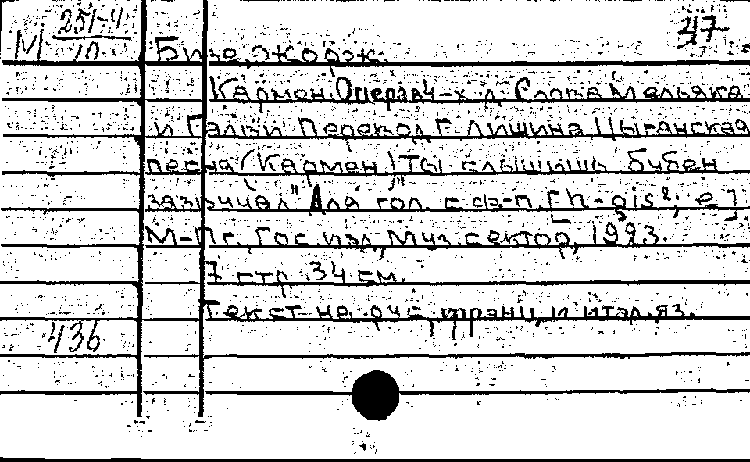 М 251-4/10
37
Бизе, Жорж.
Кармен. Опера в 4-х д. Слова Мельяка
и Галеви Перевод Г. Лишина. Цыганская
песня (Кармен) "Ты слышишь бубен
зазвучал" Для гол. с ф-п. [h-gis²; e].
М-Пг., Гос. изд., Муз. сектор, 1923.
7 стр. 34 см.
Текст на рус., франц. и итал. яз.
436